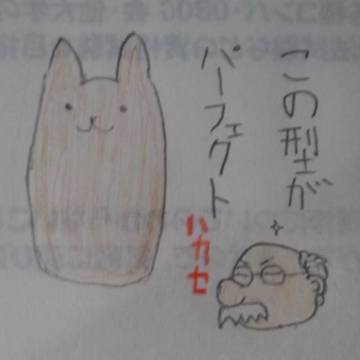 この型が
パーフェクト
ハカセ